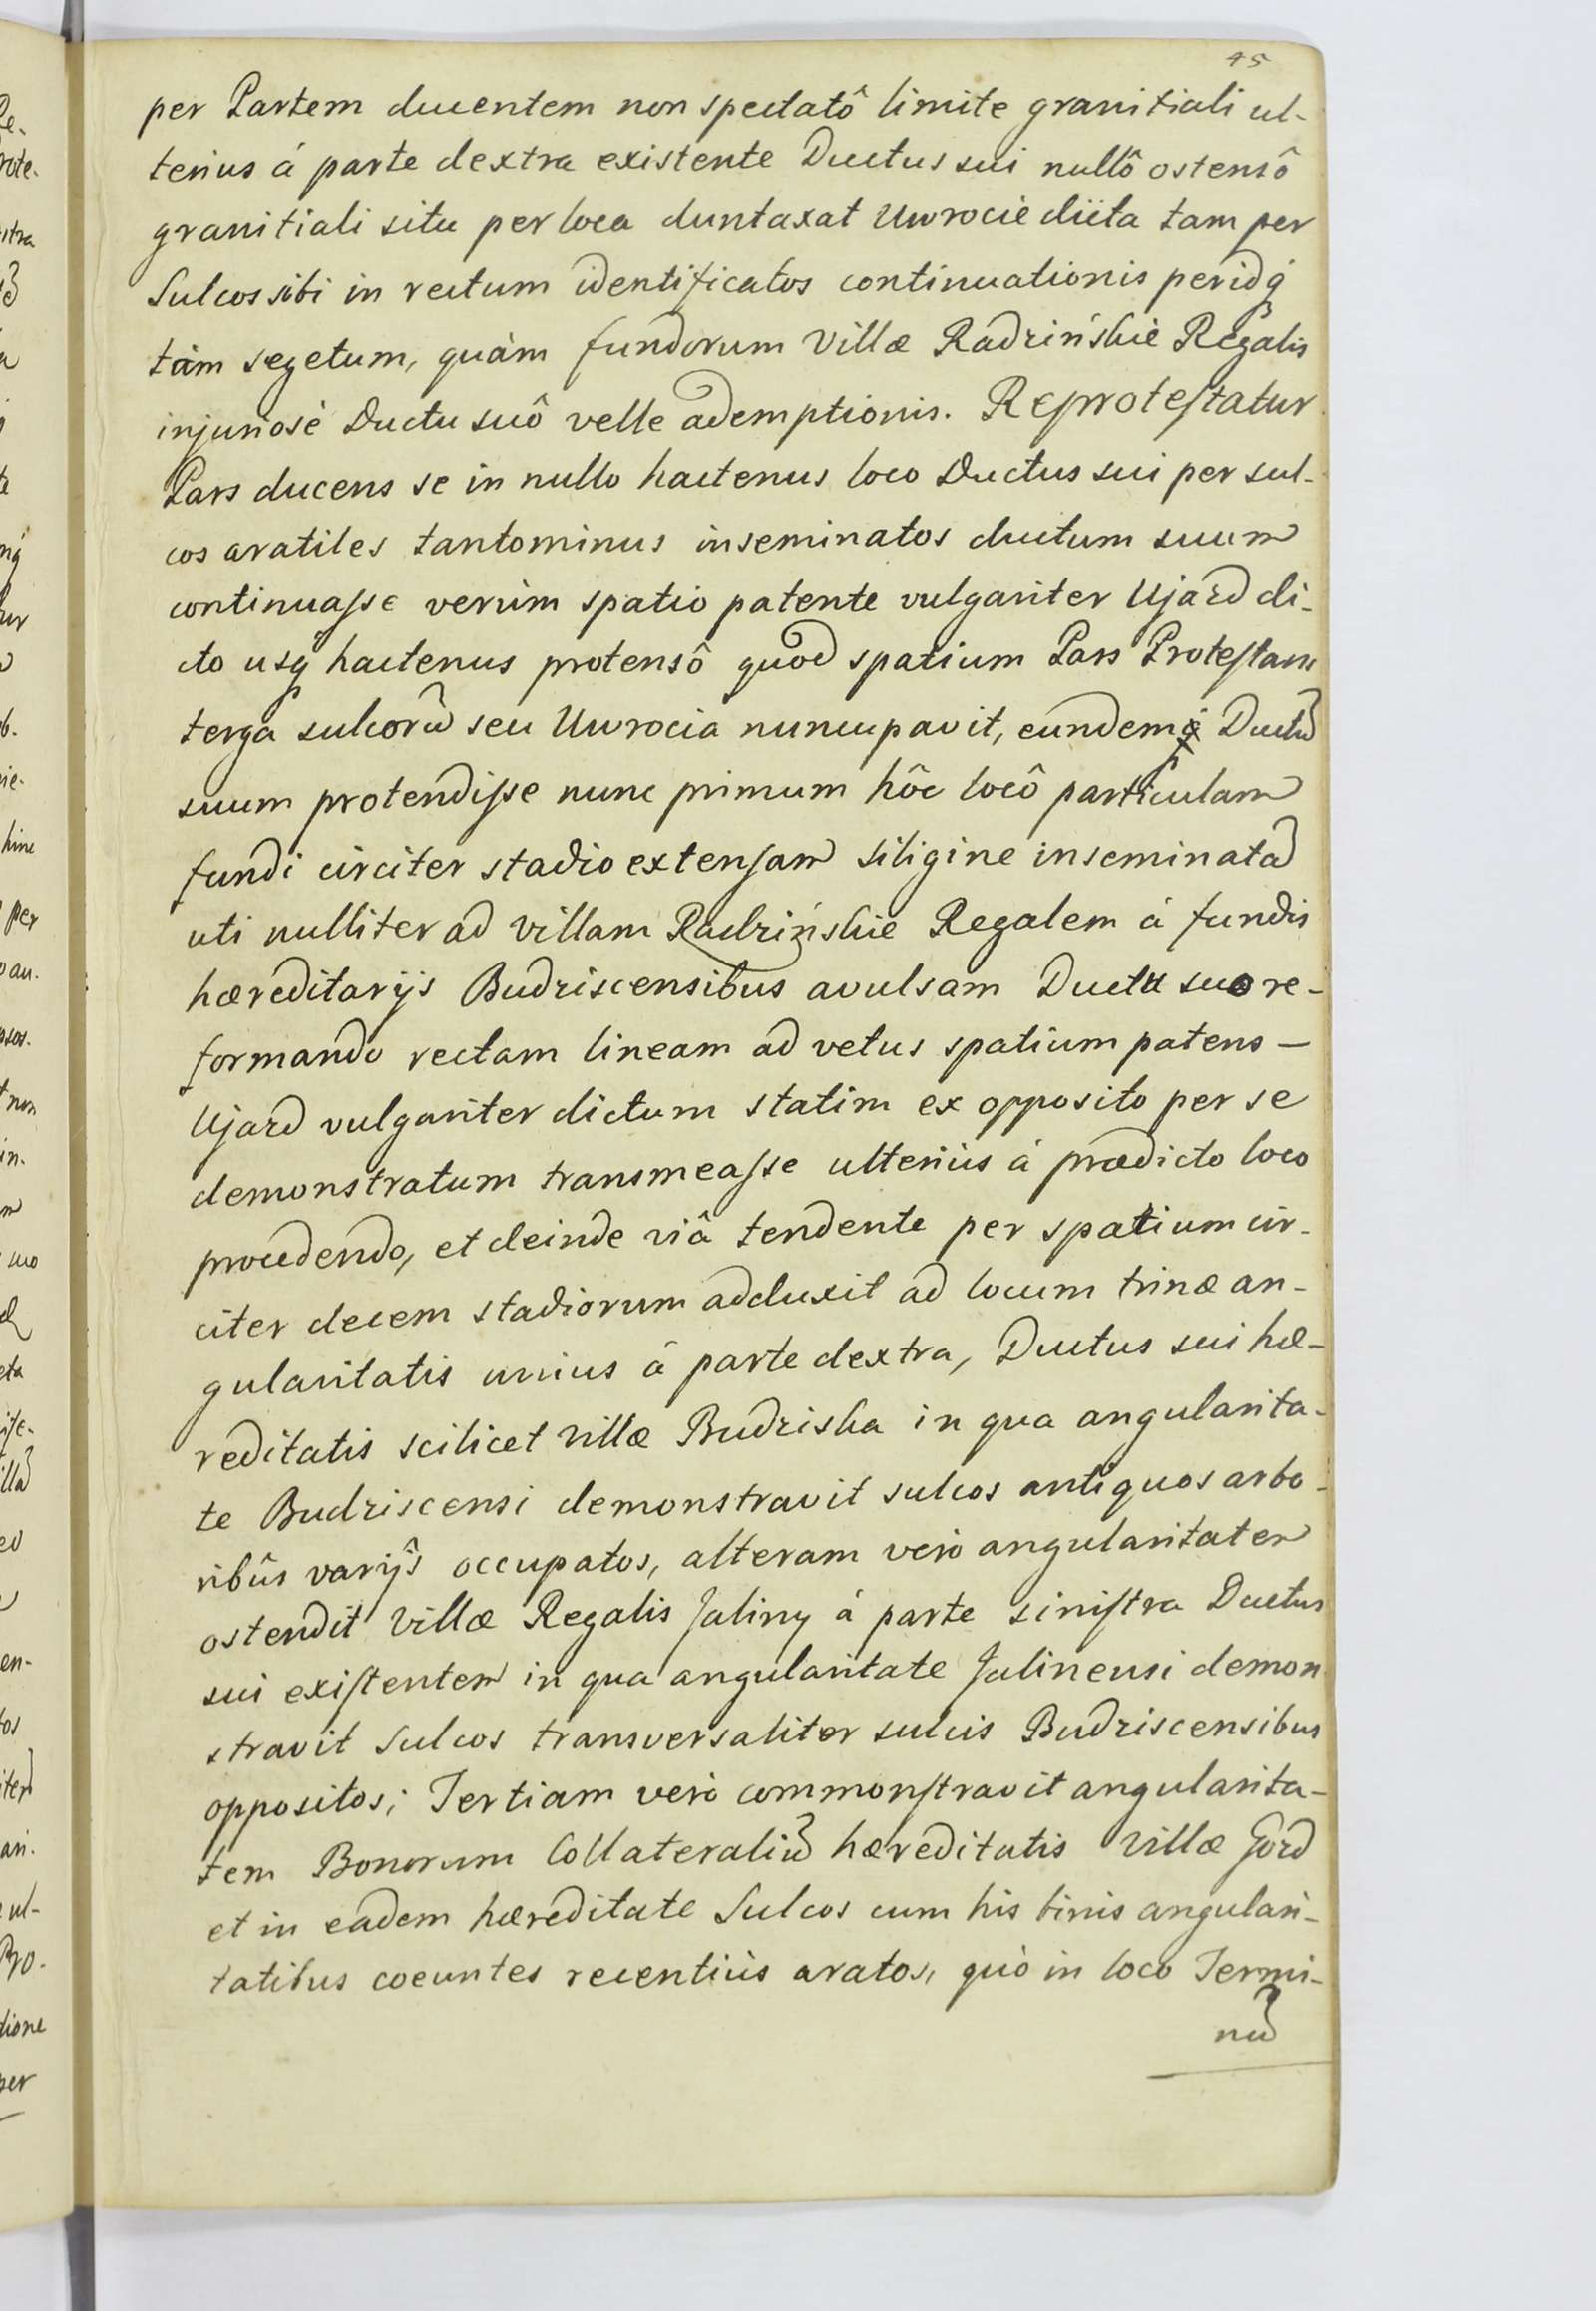 45
per Partem ducentem non spectatô limite granitiali ul-
terius á parte dextra existente Ductus sui nullô ostensô
granitiali situ per loca duntaxat Uwrocie dicta tam per
Sulcos sibi in rectum identificatos continuationis peridq́
tám segetum, quàm fundorum Villæ Radzińskie Regalis
injuriosè Ductu suô velle ademptionis. Reproteſtatur
Pars ducens se in nullo hactenus loco Ductus sui per sul-
cos aratiles tantominus inseminatos ductum suum
continuaſse verùm spatio patente vulgariter Ujazd di-
cto usq́ hactenus protensô quod spatium Pars Proteſtans
terga sulcorũ seu Uwrocia nuncupavit, eundemq́ Ductũ
suum protendiſse nunc primum hôc locô particulam
fundi circiter stadio extenſam siligine inseminatã
uti nulliter ad Villam Radzińskie Regalem á fundis
hæreditarijs Budziscensibus avulsam Ductu suo re-
formando rectam lineam ad vetus spatium patens –
Ujazd vulgariter dictum statim ex opposito per se
demonstratum transmeaſse ulteriùs á prædicto loco
procedendo, et deinde viâ tendente per spatium cir-
citer decem stadiorum adduxit ad locum trinæ an-
gularitatis unius á parte dextra, Ductus sui hæ-
reditatis scilicet Villæ Budziska in qua angularita-
te Budziscensi demonstravit sulcos antiquos arbo-
ribûs varijs occupatos, alteram verò angularitatem
ostendit Villæ Regalis Jaliny á parte siniſtra Ductus
sui exiſtentem in qua angularitate Jalinensi demon
stravit Sulcos transversaliter sulcis Budziscensibus
oppositos; Tertiam verò commonſtravit angularita-
tem Bonorum Collateraliũ hæreditatis Villæ Gozd
et in eadem hæreditate Sulcos cum his binis angulari-
tatibus coeuntes recentiùs aratos, quò in loco Termi-
nũ